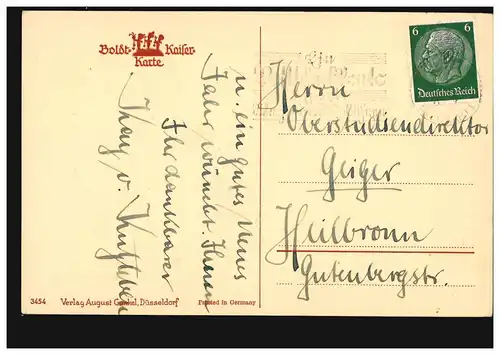 Boldt- Kaiser-
Karte
u. ein gutes Neues
Jahr wünscht Ihnen
Ihr dankbarer
v.
Ein
6 6
Deutsches Reich
Herrn
Oberstudiendirektor
Geiger
Heilbronn
Gutenbergstr.
3454 Verlag August Düsseldorf Printed in Germany